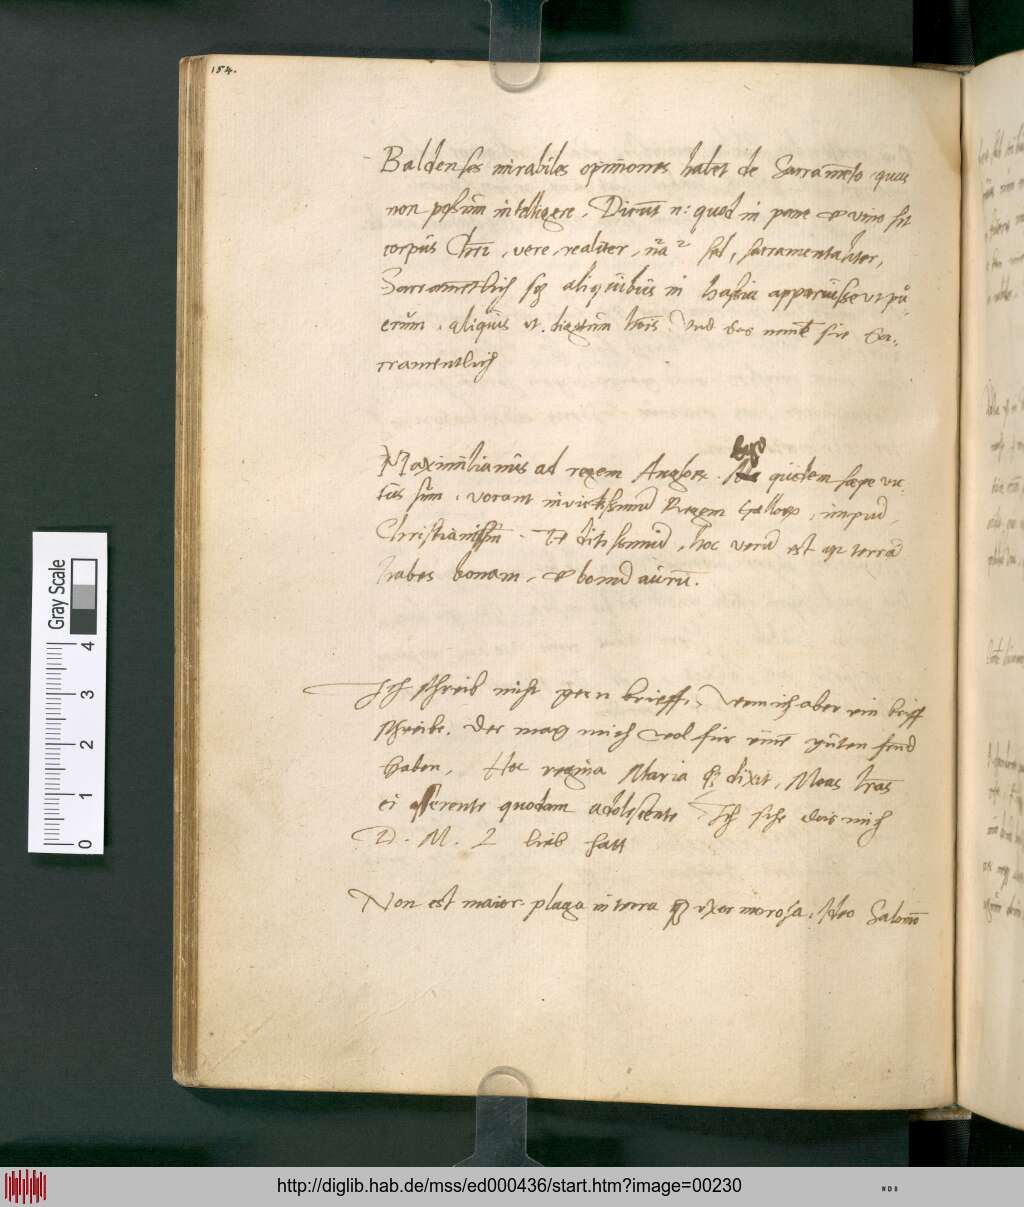 154.
Baldenses mirabiles opiniones habet de Sacramēto quas
non possum intelligere. Dicūt n: quod in pane et vino sit
corpus Chr̄i, vere, realiter, sacramentaliter,
Sacramentlich aliquibus in hastia apparuisse ut pu
erūm, aliquis ut digitum hoīs. Und das nennē sie Sa-
cramentlich
Maximilianus ad regem Anglor. Ego quidem sæpe vi-
sus sum, vocant invictissimū Regem Gallor, impiū,
Christianissim̄. Te ditissimū, hoc verū est qz terrā
habes bonam, et bonū aurū.
Ich schreib nicht gern brieff, wenn ich aber ein brieff
schreibe, der mag mich wol fur einē guten freund
haben, Hoc regina Maria dixit, Meas lr̄as
ei offerente quodam adolescente Ich sehe das mich
D. M. L lieb hatt
Non est maior plaga in terra qz uxor morosa, Ideo Salomō
Gray Scale
0 1 2 3 4
http://diglib.hab.de/mss/ed000436/start.htm?image=00230